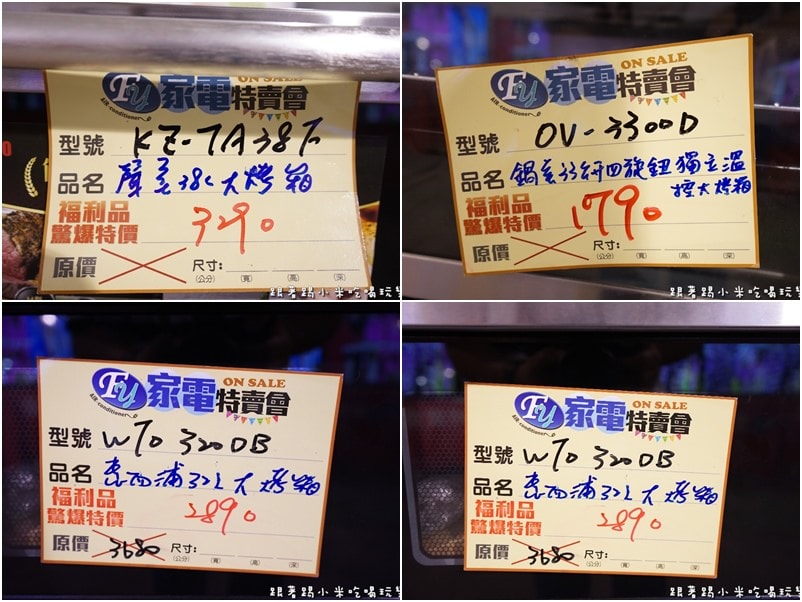 ON SALE
FY 家電特賣會
Air-conditioner
型號 KZ-TA38F
品名 38L大烤箱
福利品
驚爆特價 3290
原價
尺寸:
(公分) (寬) (高) (深)
跟著踢小米吃喝玩樂
ON SALE
FY 家電特賣會
Air-conditioner
型號 OV-3300D
品名 鍋寶33L四旋鈕獨立溫
控大烤箱
福利品
驚爆特價 1790
原價
尺寸:
(公分) (寬) (高) (深)
跟著踢小米吃喝玩樂
ON SALE
FY 家電特賣會
Air-conditioner
型號 WTO 320DB
品名 惠而浦32L大烤箱
福利品
驚爆特價 2890
原價 3680 尺寸:
(公分) (寬) (高) (深)
跟著踢小米吃喝玩樂
ON SALE
FY 家電特賣會
Air-conditioner
型號 WTO 320DB
品名 惠而浦32L大烤箱
福利品
驚爆特價 2890
原價 3680 尺寸:
(公分) (寬) (高) (深)
跟著踢小米吃喝玩樂